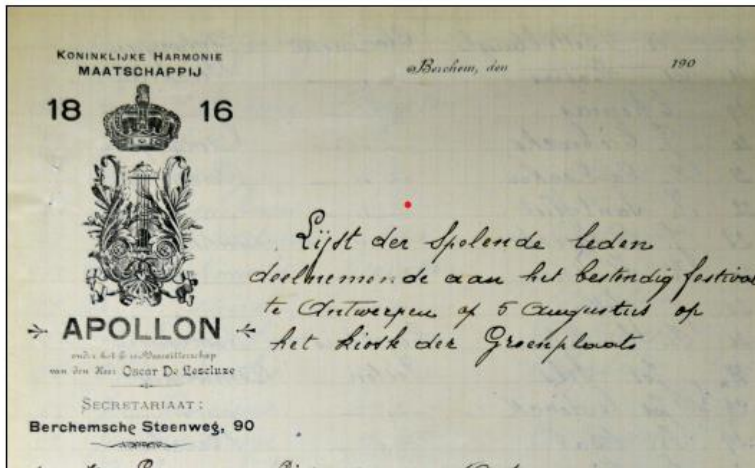 KONINKLIJKE HARMONIE
MAATSCHAPPIJ
18 16
APOLLON
onder het Eere-Voorzitterschap
van den Heer Oscar De Lezeluze
SECRETARIAAT:
Berchemsche Steenweg, 90
Berchem, den 190
Lijst der spelende leden
deelnemende aan het bestendig festival
te Antwerpen op 5 Augustus op
het kiosk der Groenplaats